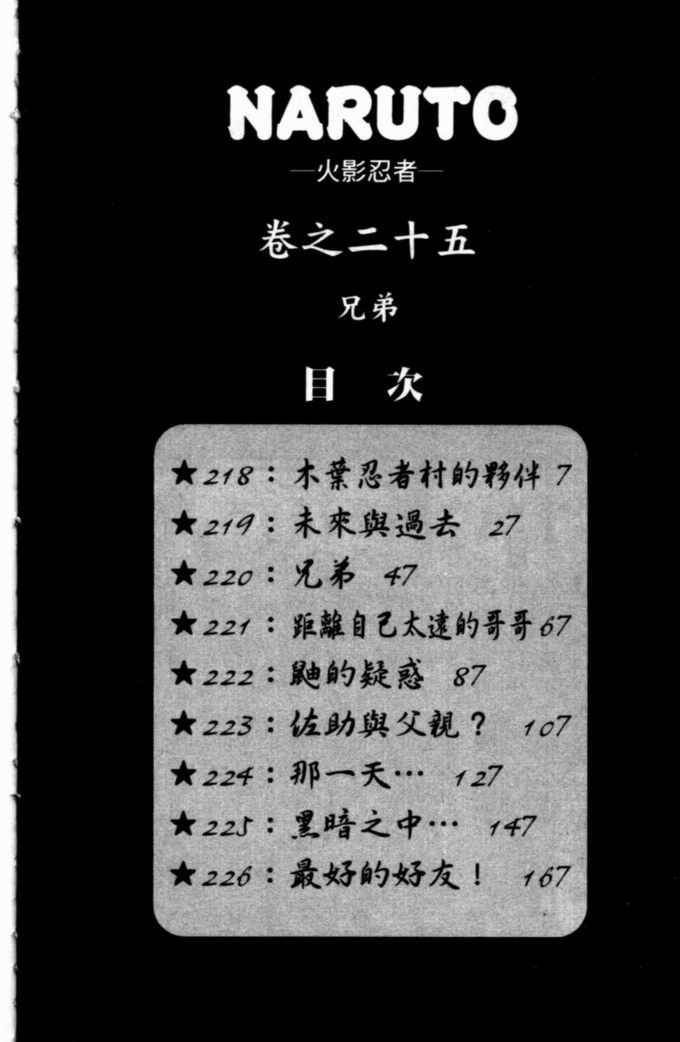 NARUTO
—火影忍者—
卷之二十五
兄弟
目 次
★218：木葉忍者村的夥伴 7
★219：未來與過去 27
★220：兄弟 47
★221：距離自己太遠的哥哥 67
★222：鼬的疑惑 87
★223：佐助與父親？ 107
★224：那一天⋯ 127
★225：黑暗之中⋯ 147
★226：最好的好友！ 167